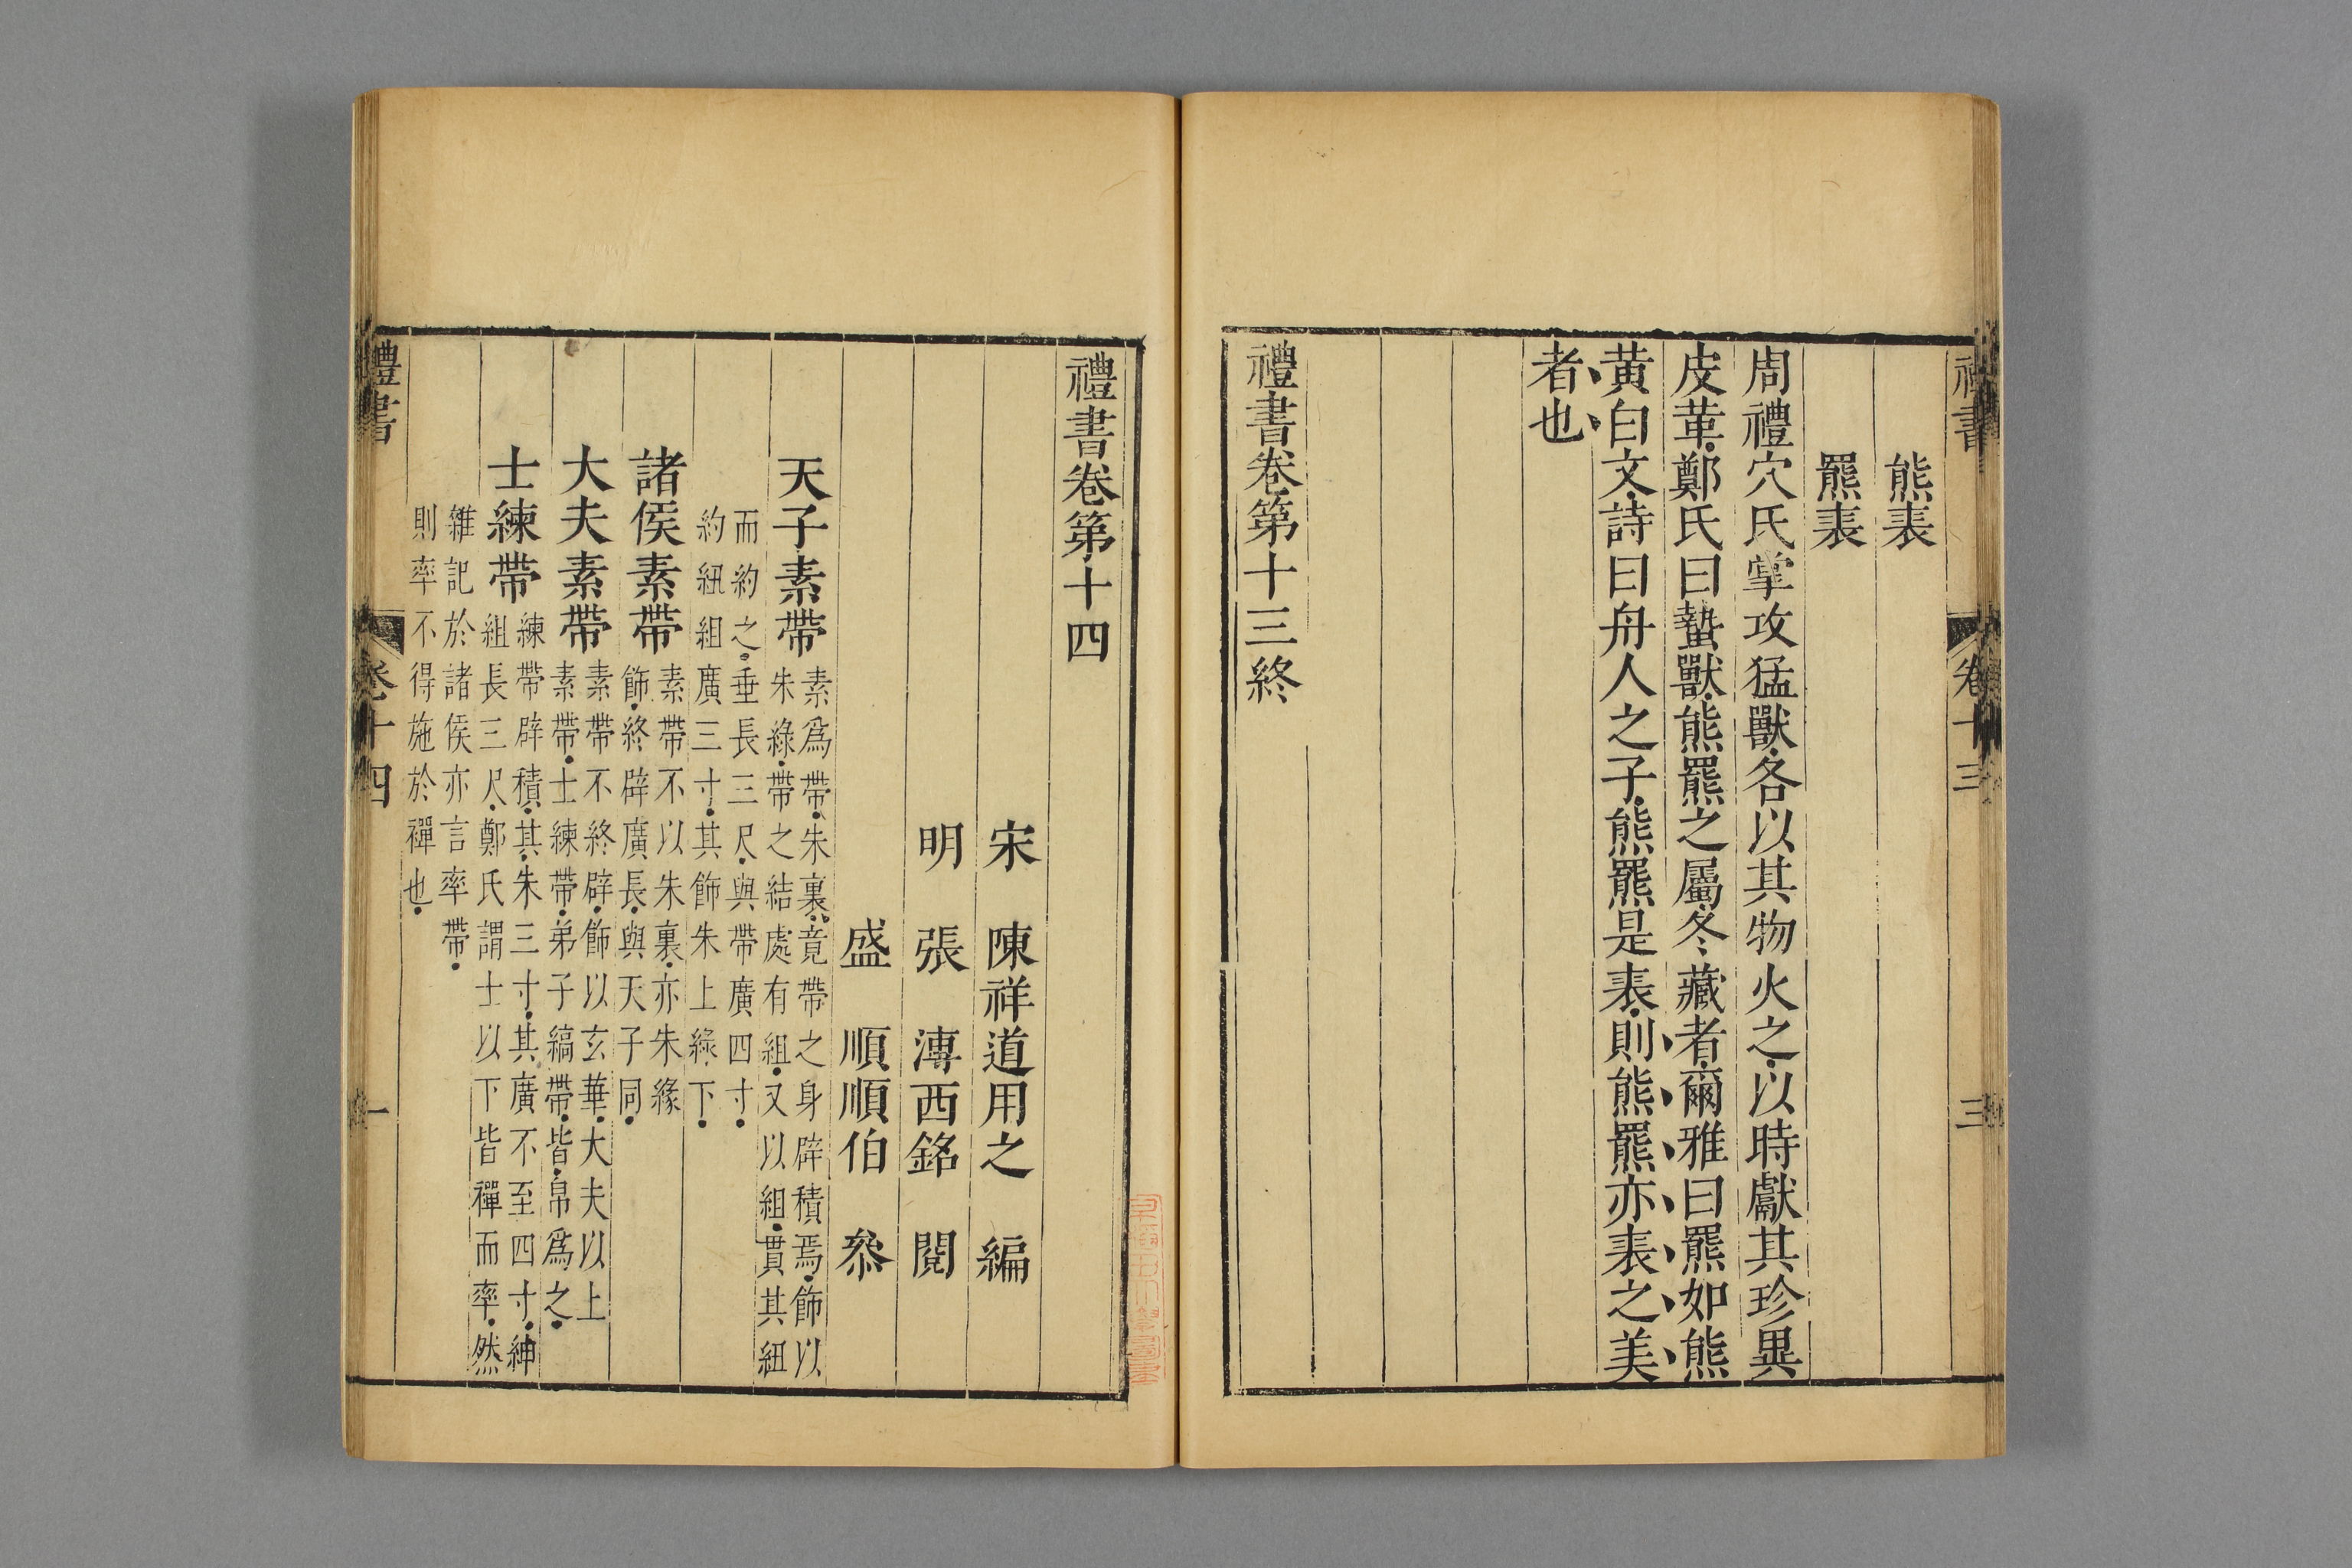 禮書 卷十三 三
熊裘
羆裘
周禮穴氏掌攻猛獸各以其物火之以時獻其珍異
皮革鄭氏曰蟄獸熊羆之屬冬藏者爾雅曰羆如熊
黃白文詩曰舟人之子熊羆是裘則熊羆亦裘之美
者也
禮書卷第十三終
禮書卷第十四
宋 陳祥道用之 編
明 張 溥西銘 閱
盛 順順伯 叅
天子素帶 素爲帶朱裏竟帶之身辟積焉飾以
朱綠帶之結處有組又以組貫其紐
而約之垂長三尺與帶廣四寸
約紐組廣三寸其飾朱上綠下
諸侯素帶 素帶不以朱裏亦朱緣
飾終辟廣長與天子同
大夫素帶 素帶不終辟飾以玄華大夫以上
素帶士練帶弟子縞帶皆帛爲之
士練帶 練帶辟積其朱三寸其廣不至四寸紳
組長三尺鄭氏謂士以下皆禪而率然
雜記於諸侯亦言率帶
則率不得施於禪也
禮書 卷十四 一